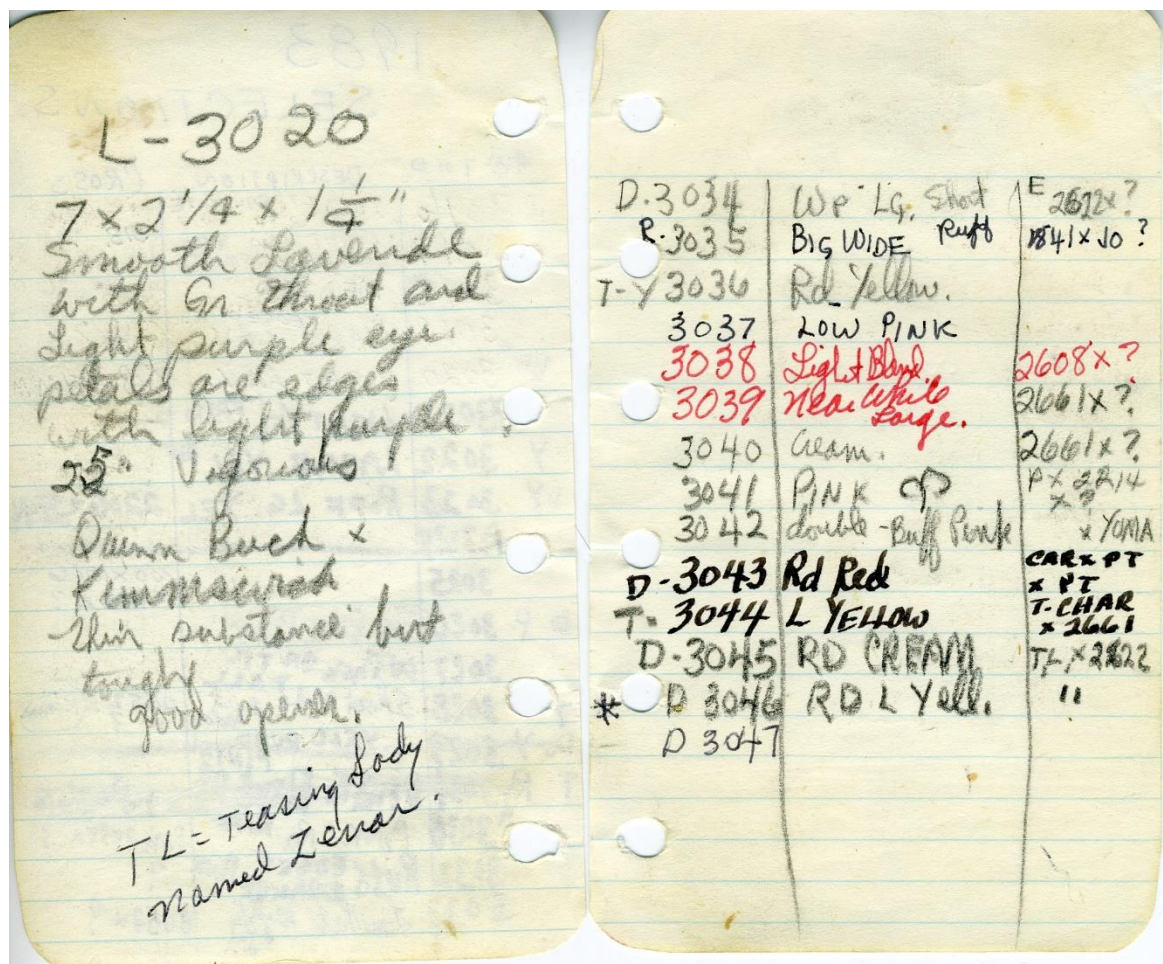 L-3020
7 x 2 1/4 x 1 1/4"
Smooth Lavende
with Gr. throat and
Light purple eye.
petals are edges
with light purple.
Vigorious
Quinn Buck x
thin substance but
toughy
good opener.
TL = Teasing Lady
named Lenar.
D-3034 Wp LG. Short E 2622 x ?
R-3035 BIG WIDE Ruff 1841 x JO ?
T-Y 3036 Rd Yellow.
3037 LOW PINK
3038 Light Blend. 2608 x ?
3039 Near White 2661 x ?
Large.
3040 Cream. 2661 x ?
3041 PINK P x 2214
x ?
3042 double-Buff Pink x YOMA
D-3043 Rd Red CAR x PT
x PT
T-3044 L YELLOW T-CHAR
x 2661
D-3045 RD CREAM TL x 2622
* D 3046 RD L Yell. "
D 3047